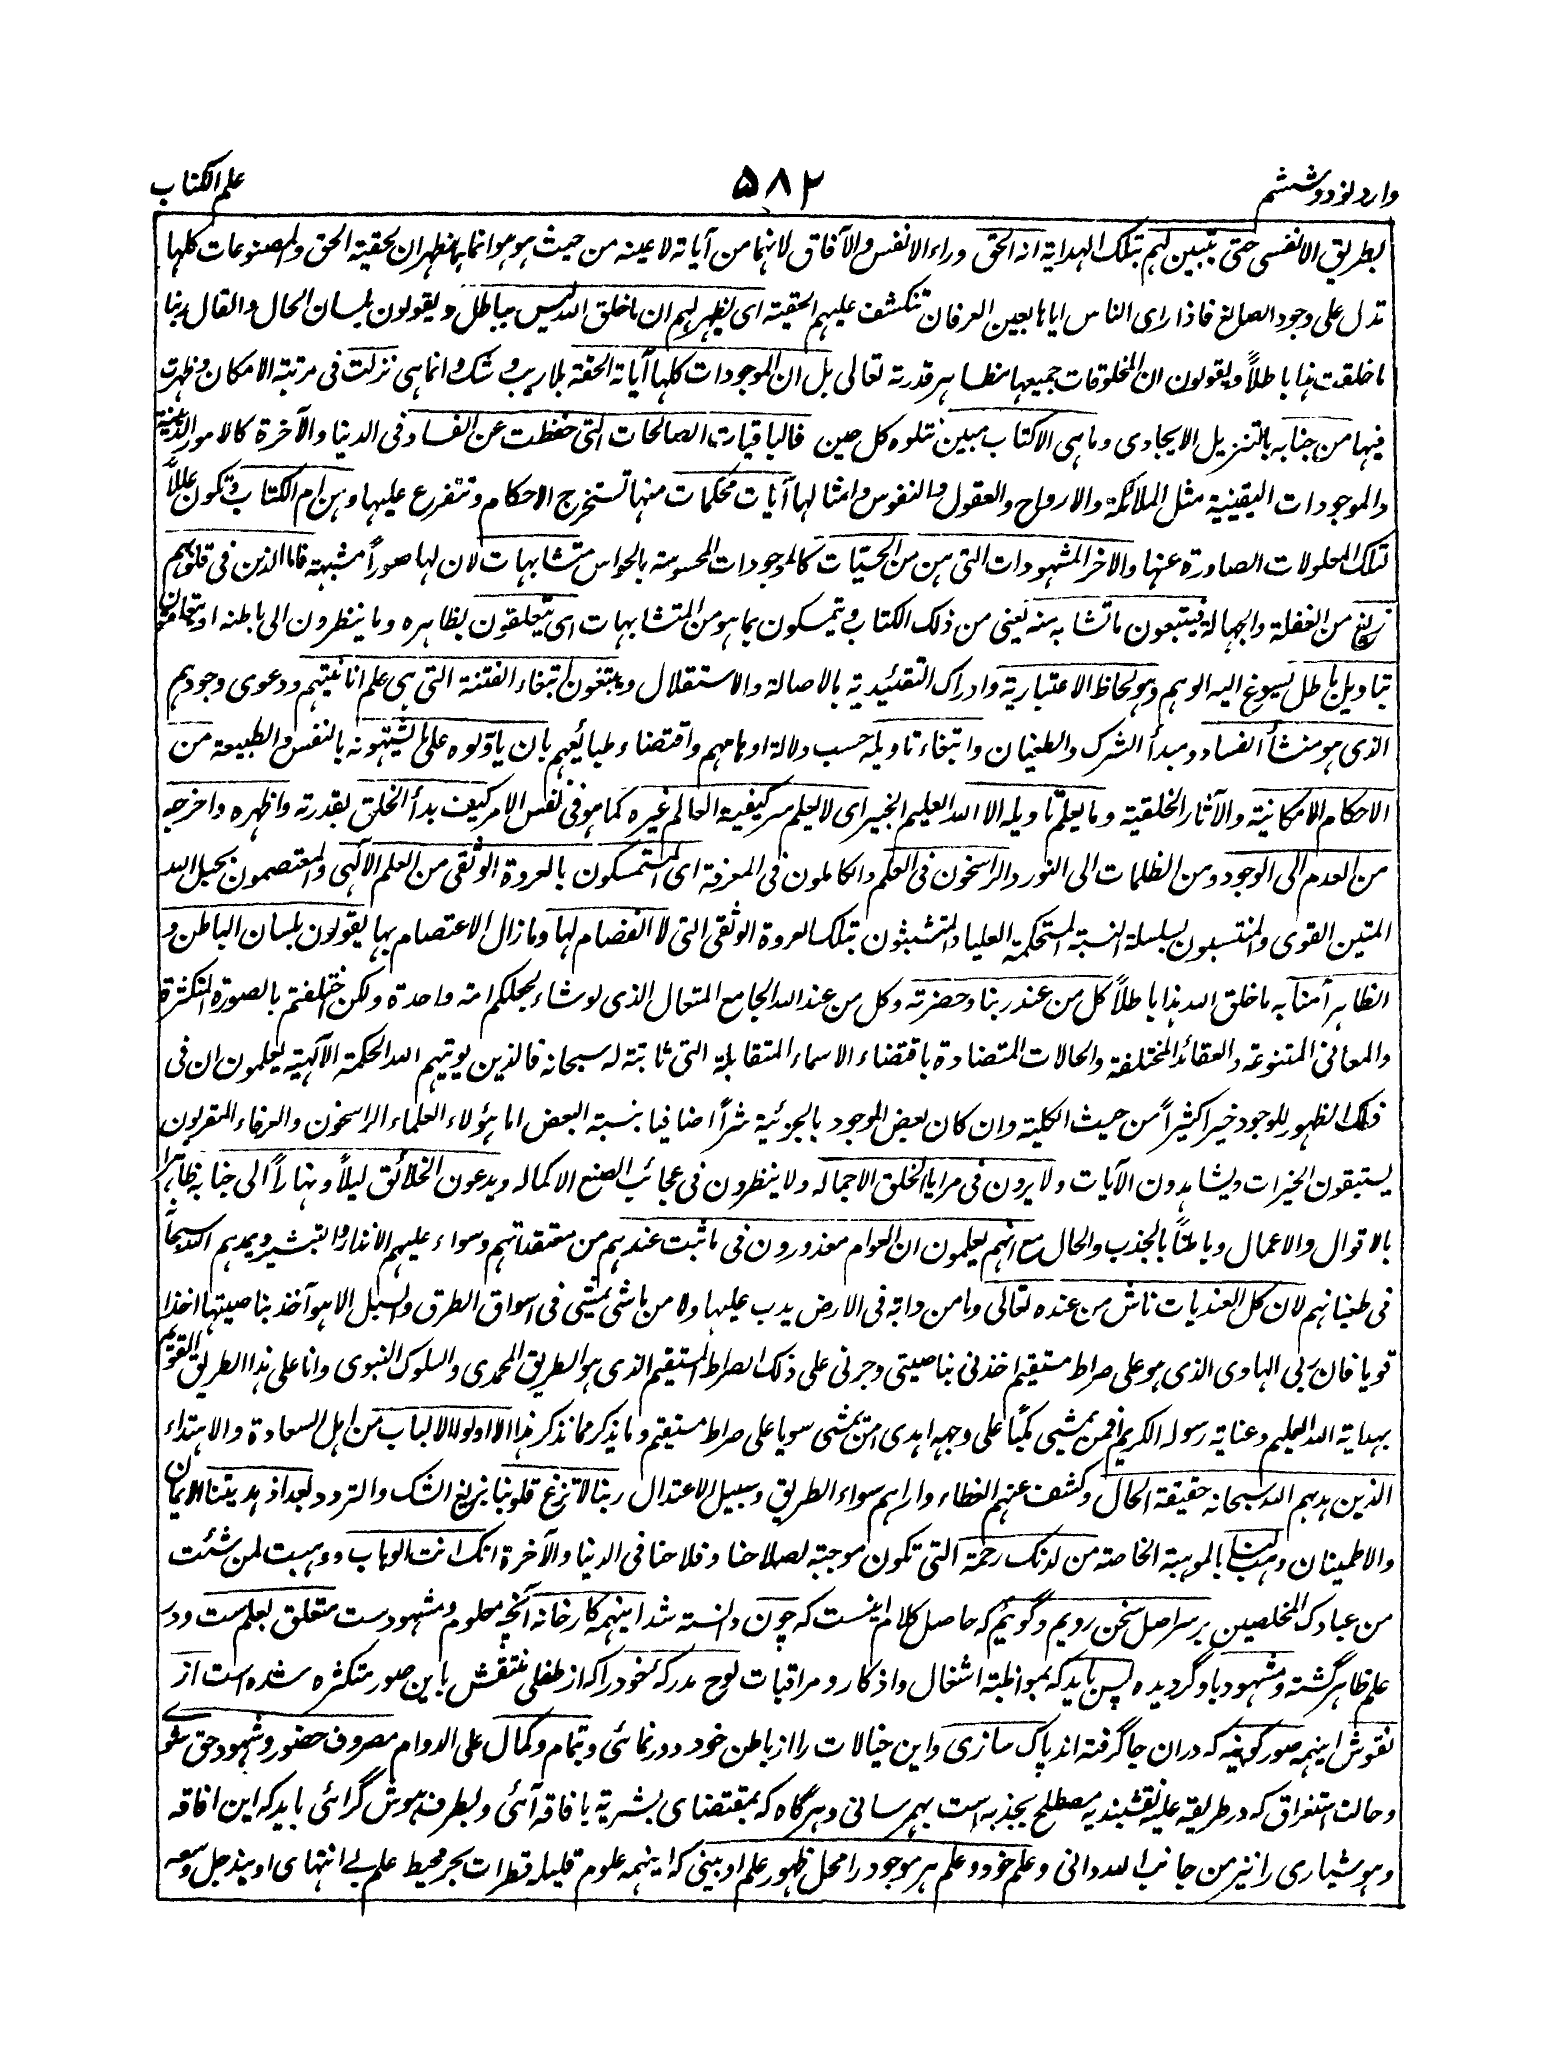 وارد نود و ششم
۵۸۲
علم الکتاب
بطریق الانفسی حتی تبین لهم بتلک الهدایة انه الحق وراء الانفس والآفاق لانهما من آیاته لا عینه من حیث هو هو انما یظهران لحقیة الحق والمصنوعات کلها
تدل علی وجود الصانع فاذا رای الناس ایاها بعین العرفان تنکشف علیهم الحقیة ای یظهر لهم ان ما خلق الله لیس بباطل ویقولون بلسان الحال والقال ربنا
ما خلقت هذا باطلاً ویقولون ان المخلوقات جمیعها مظاهر قدرته تعالی بل ان الموجودات کلها آیاته الحقة بلا ریب و شک وانما هی نزلت فی مرتبة الامکان وظهرت
فیها من جنابه بالتنزیل الایجادی وما هی الا کتاب مبین نتلوه کل حین فالباقیات الصالحات التی حفظت عن الفساد فی الدنیا والآخرة کالامور الدینیة
والموجودات الیقینیة مثل الملائکة والارواح والعقول والنفوس وامثالها آیات محکمات منها تستخرج الاحکام وتتفرع علیها وهن ام الکتاب وتکون عللاً
لتلک المعلولات الصادرة عنها والاخر المشهودات التی هن من الحسیات کالموجودات المحسوسة بالحواس متشابهات لان لها صوراً مشبهة فاما الذین فی قلوبهم
زیغ من الغفلة والجهالة فیتبعون ما تشابه منه یعنی من ذلک الکتاب ویتمسکون بما هو من المتشابهات ای یتعلقون بظاهره وما ینظرون الی باطنه او یتعلقون
بتاویل باطل یسوغ الیه الوهم وهو لحاظ الاعتباریة وادراک التقییدیة بالاصالة والاستقلال ویبتغون ابتغاء الفتنة التی هی علم انانیتهم ودعوی وجودهم
الذی هو منشأ الفساد ومبدأ الشرک والطغیان وابتغاء تاویله حسب دلالة اوهامهم واقتضاء طبائعهم بان یاؤلوه علی ما یشتهونه بالنفس والطبیعة من
الاحکام الامکانیة والآثار الخلقیة وما یعلم تاویله الا الله العلیم الخبیر ای لا یعلم سر کیفیة العالم غیره کما هو فی نفس الامر کیف بدأ الخلق بقدرته واظهره واخرجه
من العدم الی الوجود ومن الظلمات الی النور والراسخون فی العلم والکاملون فی المعرفة ای المستمسکون بالعروة الوثقی من العلم الآلهی والمعتصمون بحبل الله
المتین القوی والمنتسبون بسلسلة النسبة المستحکمة العلیا والمتشبثون بتلک العروة الوثقی التی لا انفصام لها وما زال الاعتصام بها یقولون بلسان الباطن و
الظاهر أمنا به ما خلق الله هذا باطلاً کل من عند ربنا وحضرته وکل من عند الله الجامع المتعال الذی لو شاء لجعلکم امة واحدة ولکن اختلفتم بالصورة المتکثرة
والمعانی المتنوعة والعقائد المختلفة والحالات المتضادة باقتضاء الاسماء المتقابلة التی ثابتة له سبحانه فالذین یوتیهم الله الحکمة الآلهیة یعلمون ان فی
ذلک الظهور للوجود خیراً کثیراً من حیث الکلیة وان کان بعض الموجود بالجزئیة شراً اضافیا بنسبة البعض اما هؤلاء العلماء الراسخون والعرفاء المقربون
یستبقون الخیرات ویشاهدون الآیات ولا یرون فی مرایا الخلق الا جماله ولا ینظرون فی عجائب الصنع الا کماله ویدعون الخلائق لیلاً ونهاراً الی جنابه ظاهراً
بالاقوال والاعمال وباطناً بالجذب والحال مع انهم یعلمون ان العوام معذورون فی ما ثبت عندهم من معتقداتهم وسواء علیهم الانذار والتبشیر ویمدهم الله سبحانه
فی طغیانهم لان کل العندیات ناش من عنده تعالی وما من دابة فی الارض یدب علیها ولا من ماشی یمشی فی اسواق الطرق والسبل الا هو آخذ بناصیتها اخذا
قویا فان ربی الهادی الذی هو علی صراط مستقیم اخذنی بناصیتی وجرنی علی ذلک الصراط المستقیم الذی هو الطریق المحمدی والسلوک النبوی وانا علی هذا الطریق القویم
بهدایة الله العلیم وعنایة رسوله الکریم افمن یمشی مکباً علی وجهه اهدی امن یمشی سویا علی صراط مستقیم وما یذکر مما نذکر هذا الا اولوا الالباب من اهل السعادة والاهتداء
الذین هدهم الله سبحانه حقیقة الحال وکشف عنهم الغطاء واراهم سواء الطریق وسبیل الاعتدال ربنا لا تزغ قلوبنا بزیغ الشک والتردد بعد اذ هدیتنا الایمان
والاطمینان وهب لنا بالموهبة الخاصة من لدنک رحمة التی تکون موجبة لصلاحنا وفلاحنا فی الدنیا والآخرة انک انت الوهاب ووهبت لمن شئت
من عبادک المخلصین بر سر اصل سخن رویم و گوئیم که حاصل کلام اینست که چون دانسته شد اینهمه کارخانه آنچه معلوم و مشهودست متعلق بعلم ست و در
علم ظاهر گشته و مشهود باو گردیده پس باید که بمواظبة اشغال و اذکار و مراقبات لوح مدرکهٔ خود را که از طفلی منتقش باین صور متکثره شده است از
نقوش اینهمه صور کونیه که دران جا گرفته اند پاک سازی و این خیالات را از باطن خود دور نمائی و بتمام و کمال علی الدوام مصروف حضور و شهود حق شوی
و حالت استغراق که در طریقه علیه نقشبندیه مصطلح بجذبه است بهم رسانی و هرگاه که بمقتضای بشریة بافاقه آئی و بطرف هوش گرائی باید که این افاقه
و هوشیاری را نیز من جانب الله دانی و علم خود و علم هر موجود را محل ظهور علم او بینی که اینهمه علوم قلیله قطرات بحر محیط علم بے انتهای او بیند جل وسعه